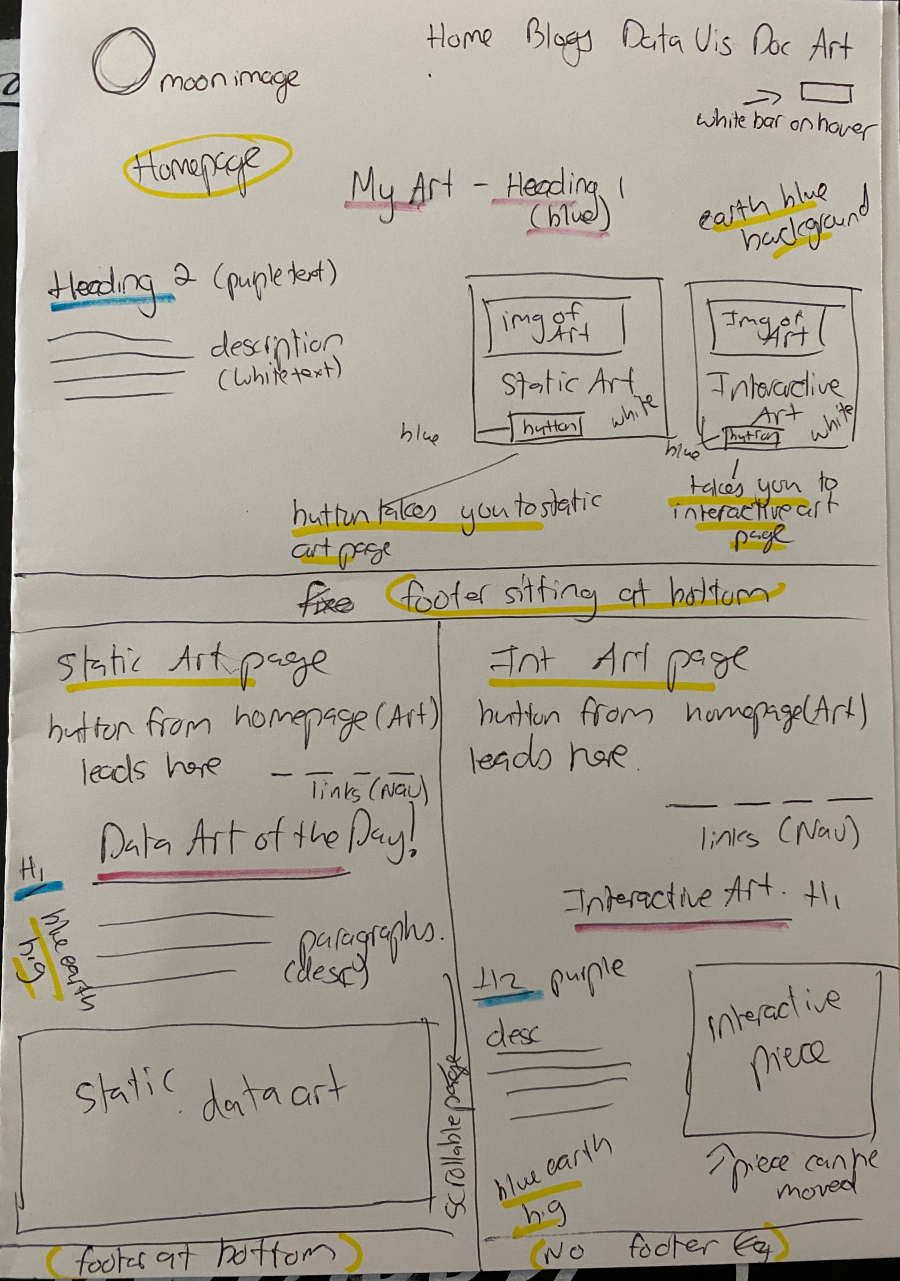 Home Blogs Data Vis Doc Art
moon image
white bar on hover
Homepage
My Art - Heading 1
(blue)
earth blue
background
Heading 2 (puple text)
description
(white text)
img of
Art
Static Art
button
white
blue
Img of
Art
Interactive
Art
button
white
blue
button takes you to static
art page
takes you to
interactive art
page
footer sitting at bottom
Static Art page
button from homepage (Art)
leads here
links (Nav)
Data Art of the Day!
H1
blue earth
big
paragraphs.
(descr)
static data art
scrollable page
(footer at bottom)
Int Art page
button from homepage (Art)
leads here.
links (Nav)
Interactive Art. H1
H2 purple
desc
interactive
piece
piece can be
moved
blue earth
big
(No footer